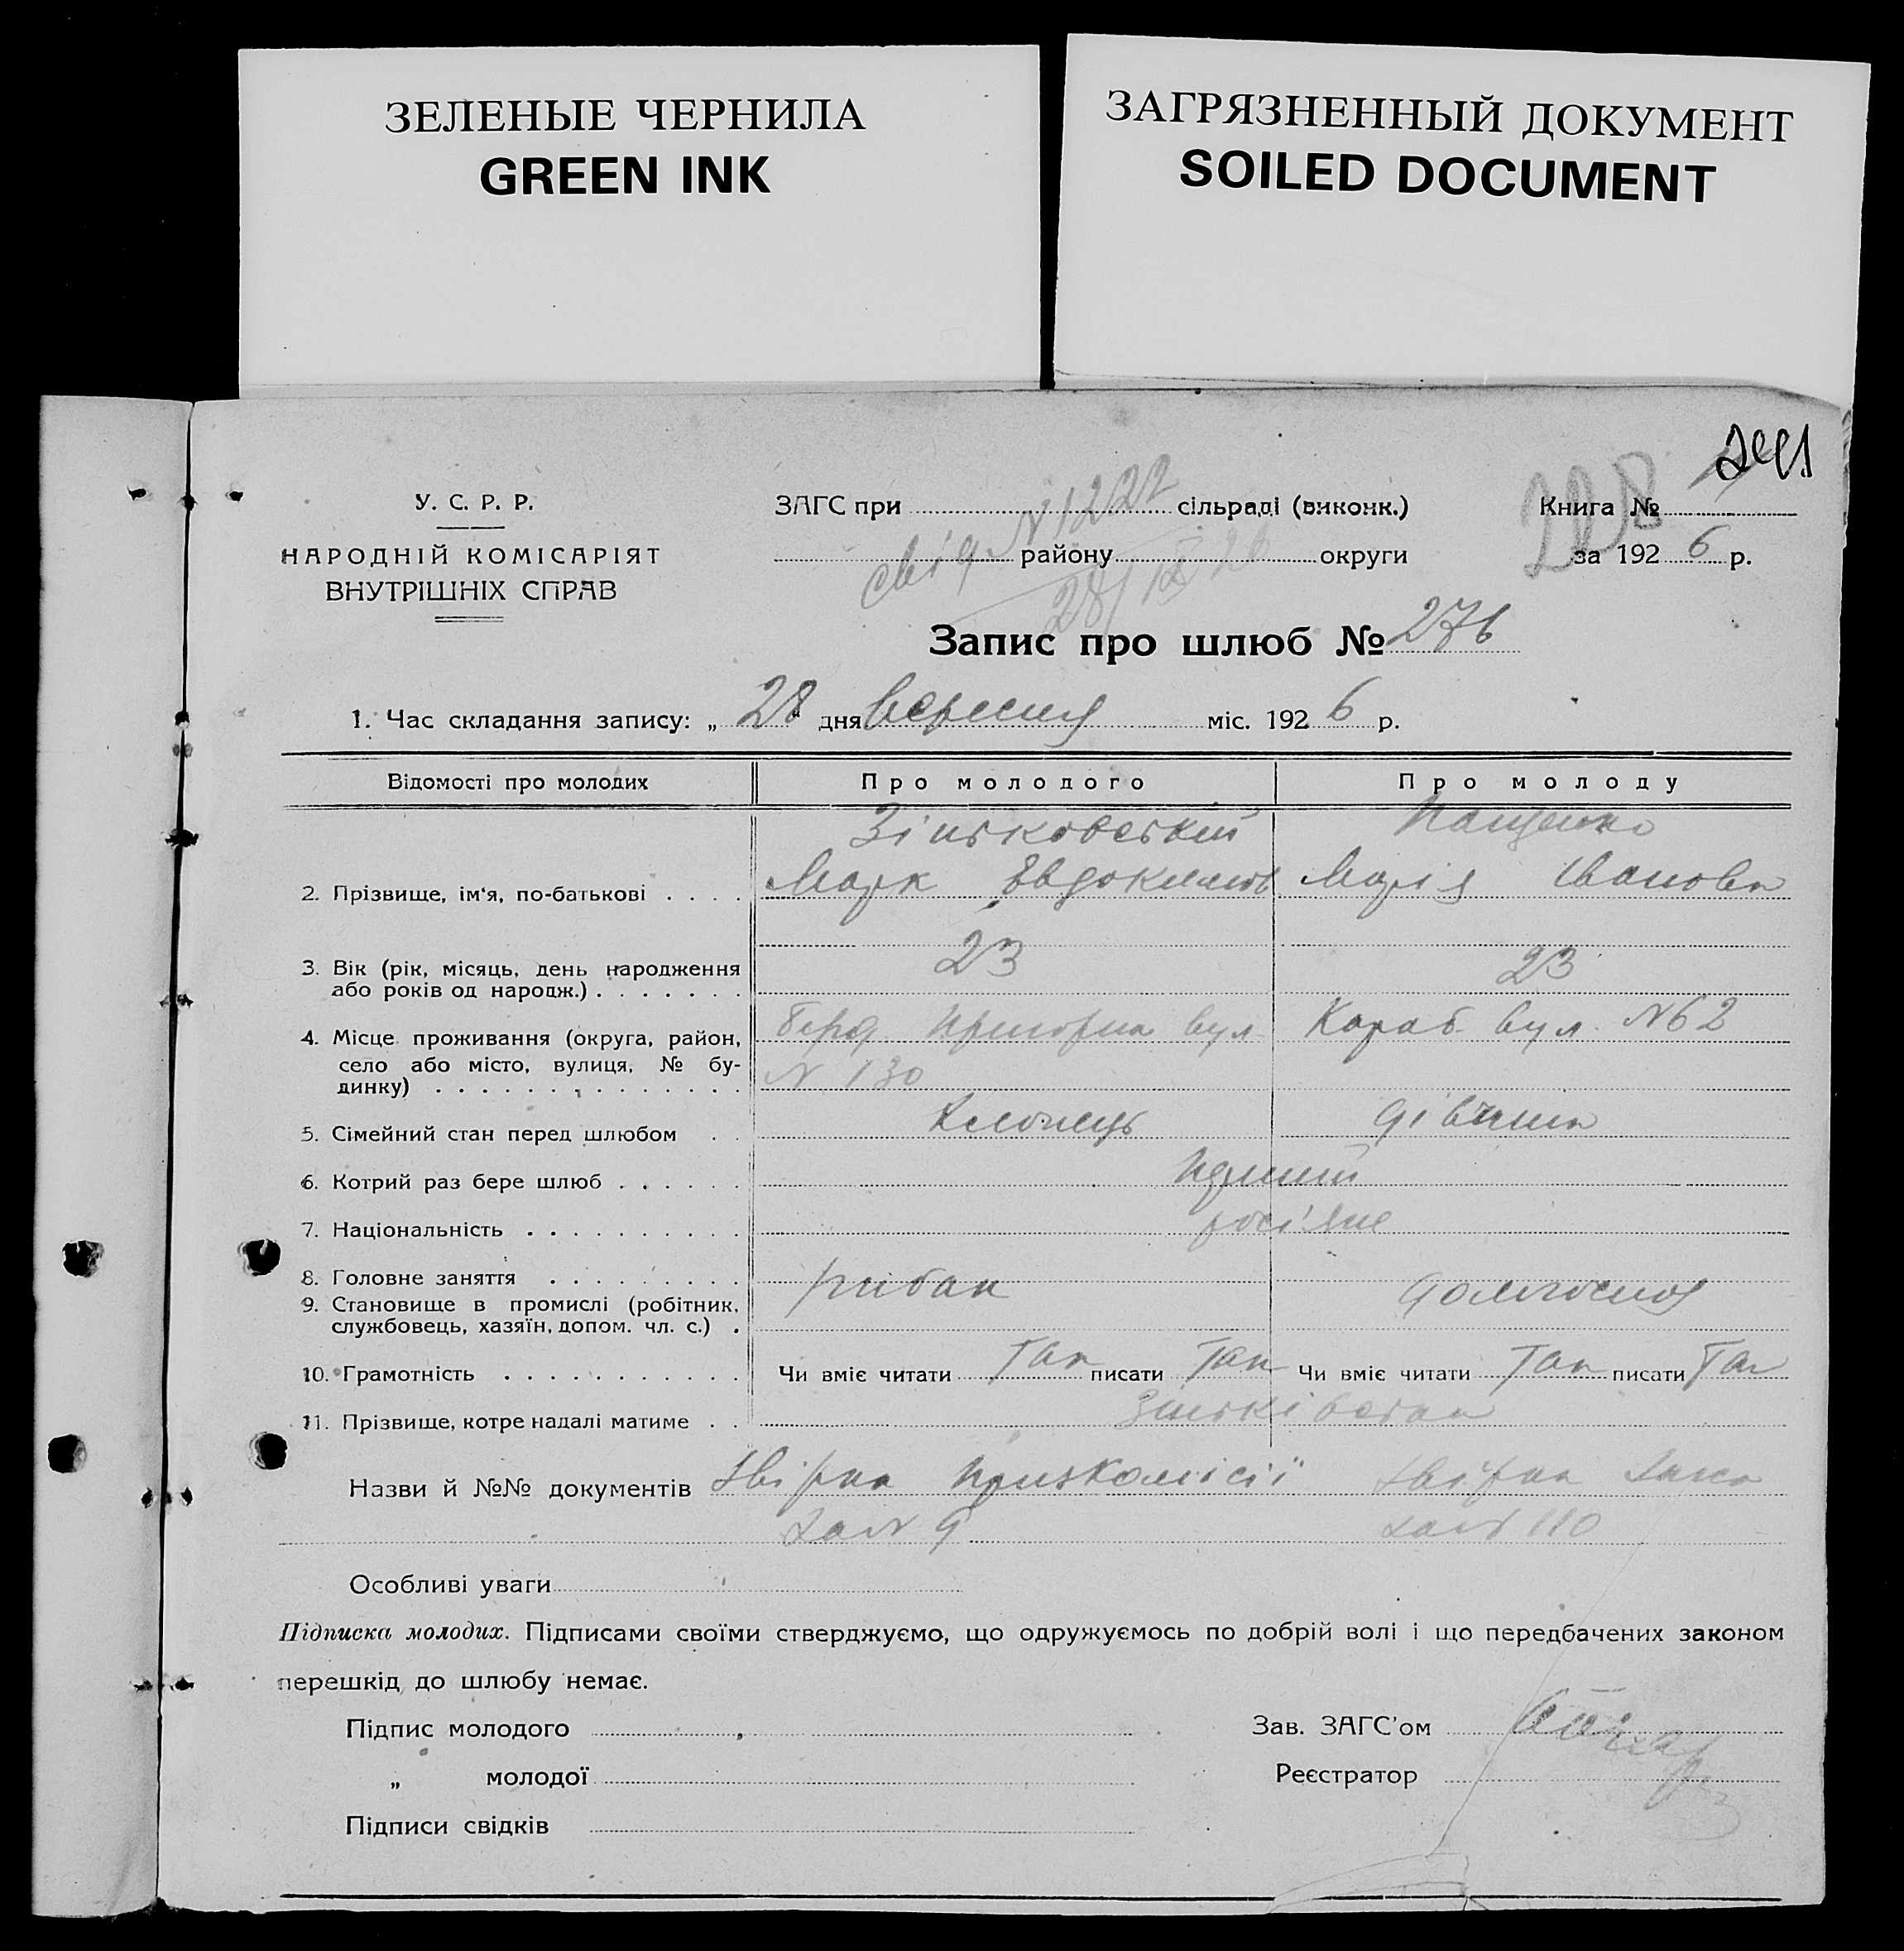 ЗЕЛЕНЫЕ ЧЕРНИЛА
GREEN INK
ЗАГРЯЗНЕННЫЙ ДОКУМЕНТ
SOILED DOCUMENT
У. С. Р. Р.
НАРОДНІЙ КОМІСАРІЯТ
ВНУТРІШНІХ СПРАВ
ЗАГС при сільраді (виконк.)
району округи
свід N 1222
28/IX 26
208
Книга №
за 1926 р.
Запис про шлюб № 276
1. Час складання запису: „28" дня вересня міс. 1926 р.
Відомості про молодих Про молодого Про молоду
Зіньковський Пащенко
2. Прізвище, ім'я, по-батькові . . . . Марк Евдокимов Марія Іванова
3. Вік (рік, місяць, день народження 23 23
або років од народж.) . . . . . . .
4. Місце проживання (округа, район, Берд. Пригорна вул. Караб. вул. N 62
село або місто, вулиця, № бу- N 130
динку) . . . . . . . . . . . . . .
5. Сімейний стан перед шлюбом . . Хлопець дівчина
6. Котрий раз бере шлюб . . . . . .
7. Національність . . . . . . . . . . росіяне
8. Головне заняття . . . . . . . . . рибак
9. Становище в промислі (робітник,
службовець, хазяїн, допом. чл. с.) .
10. Грамотність . . . . . . . . . . . Чи вміє читати Так писати Так Чи вміє читати Так писати Так
11. Прізвище, котре надалі матиме . .
Назви й №№ документів Звірка Призкомісії Звірка
за N 9 за N 110
Особливі уваги
Підписка молодих. Підписами своїми стверджуємо, що одружуємось по добрій волі і що передбачених законом
перешкід до шлюбу немає.
Підпис молодого Зав. ЗАГС'ом
„ молодої Реєстратор
Підписи свідків